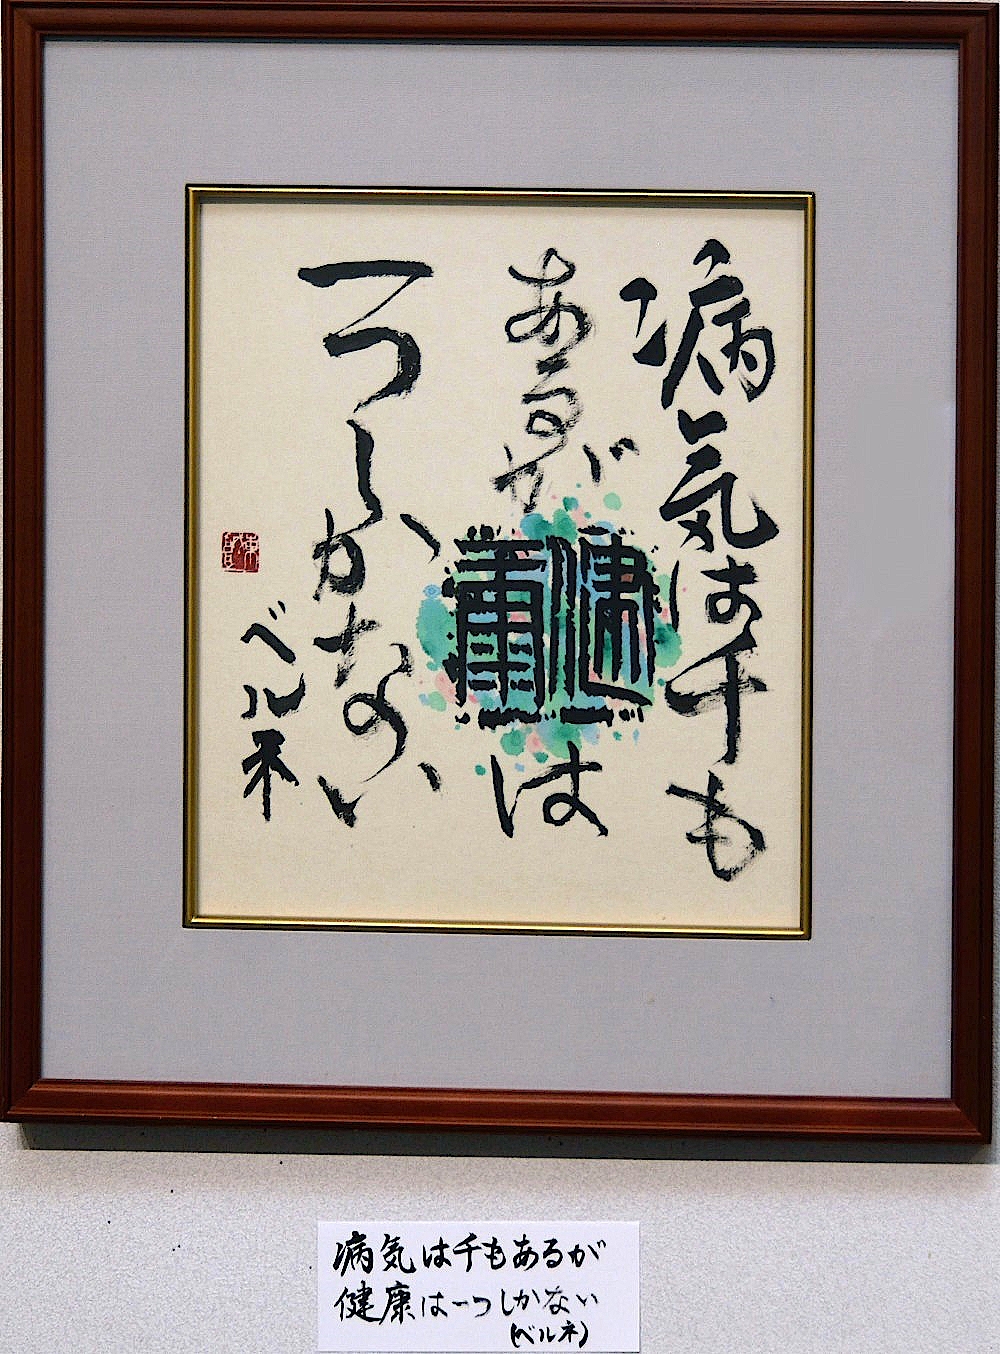 病気は千も
あるが
健康は
一つしかない
ベルネ
病気は千もあるが
健康は一つしかない
(ベルネ)